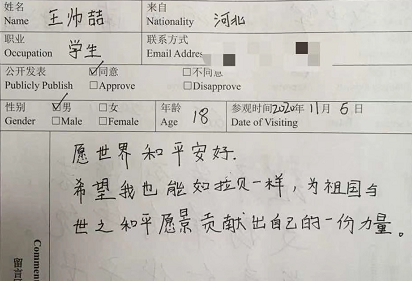 姓名 王帅喆 来自 河北
Name Nationality
职业 学生 联系方式
Occupation Email Address
公开发表 ☑同意 □不同意
Publicly Publish □Approve □Disapprove
性别 ☑男 □女 年龄 18 参观时间2020年11月6日
Gender □Male □Female Age Date of Visiting
愿世界和平安好.
希望我也能如拉贝一样，为祖国与
世之和平愿景贡献出自己的一份力量。
Comment
留言